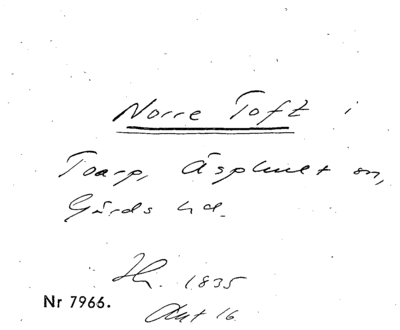 Norre Toft i
Toarp, Äsphult sn,
Gärds hd.
1835
Nr 7966.
Akt 16